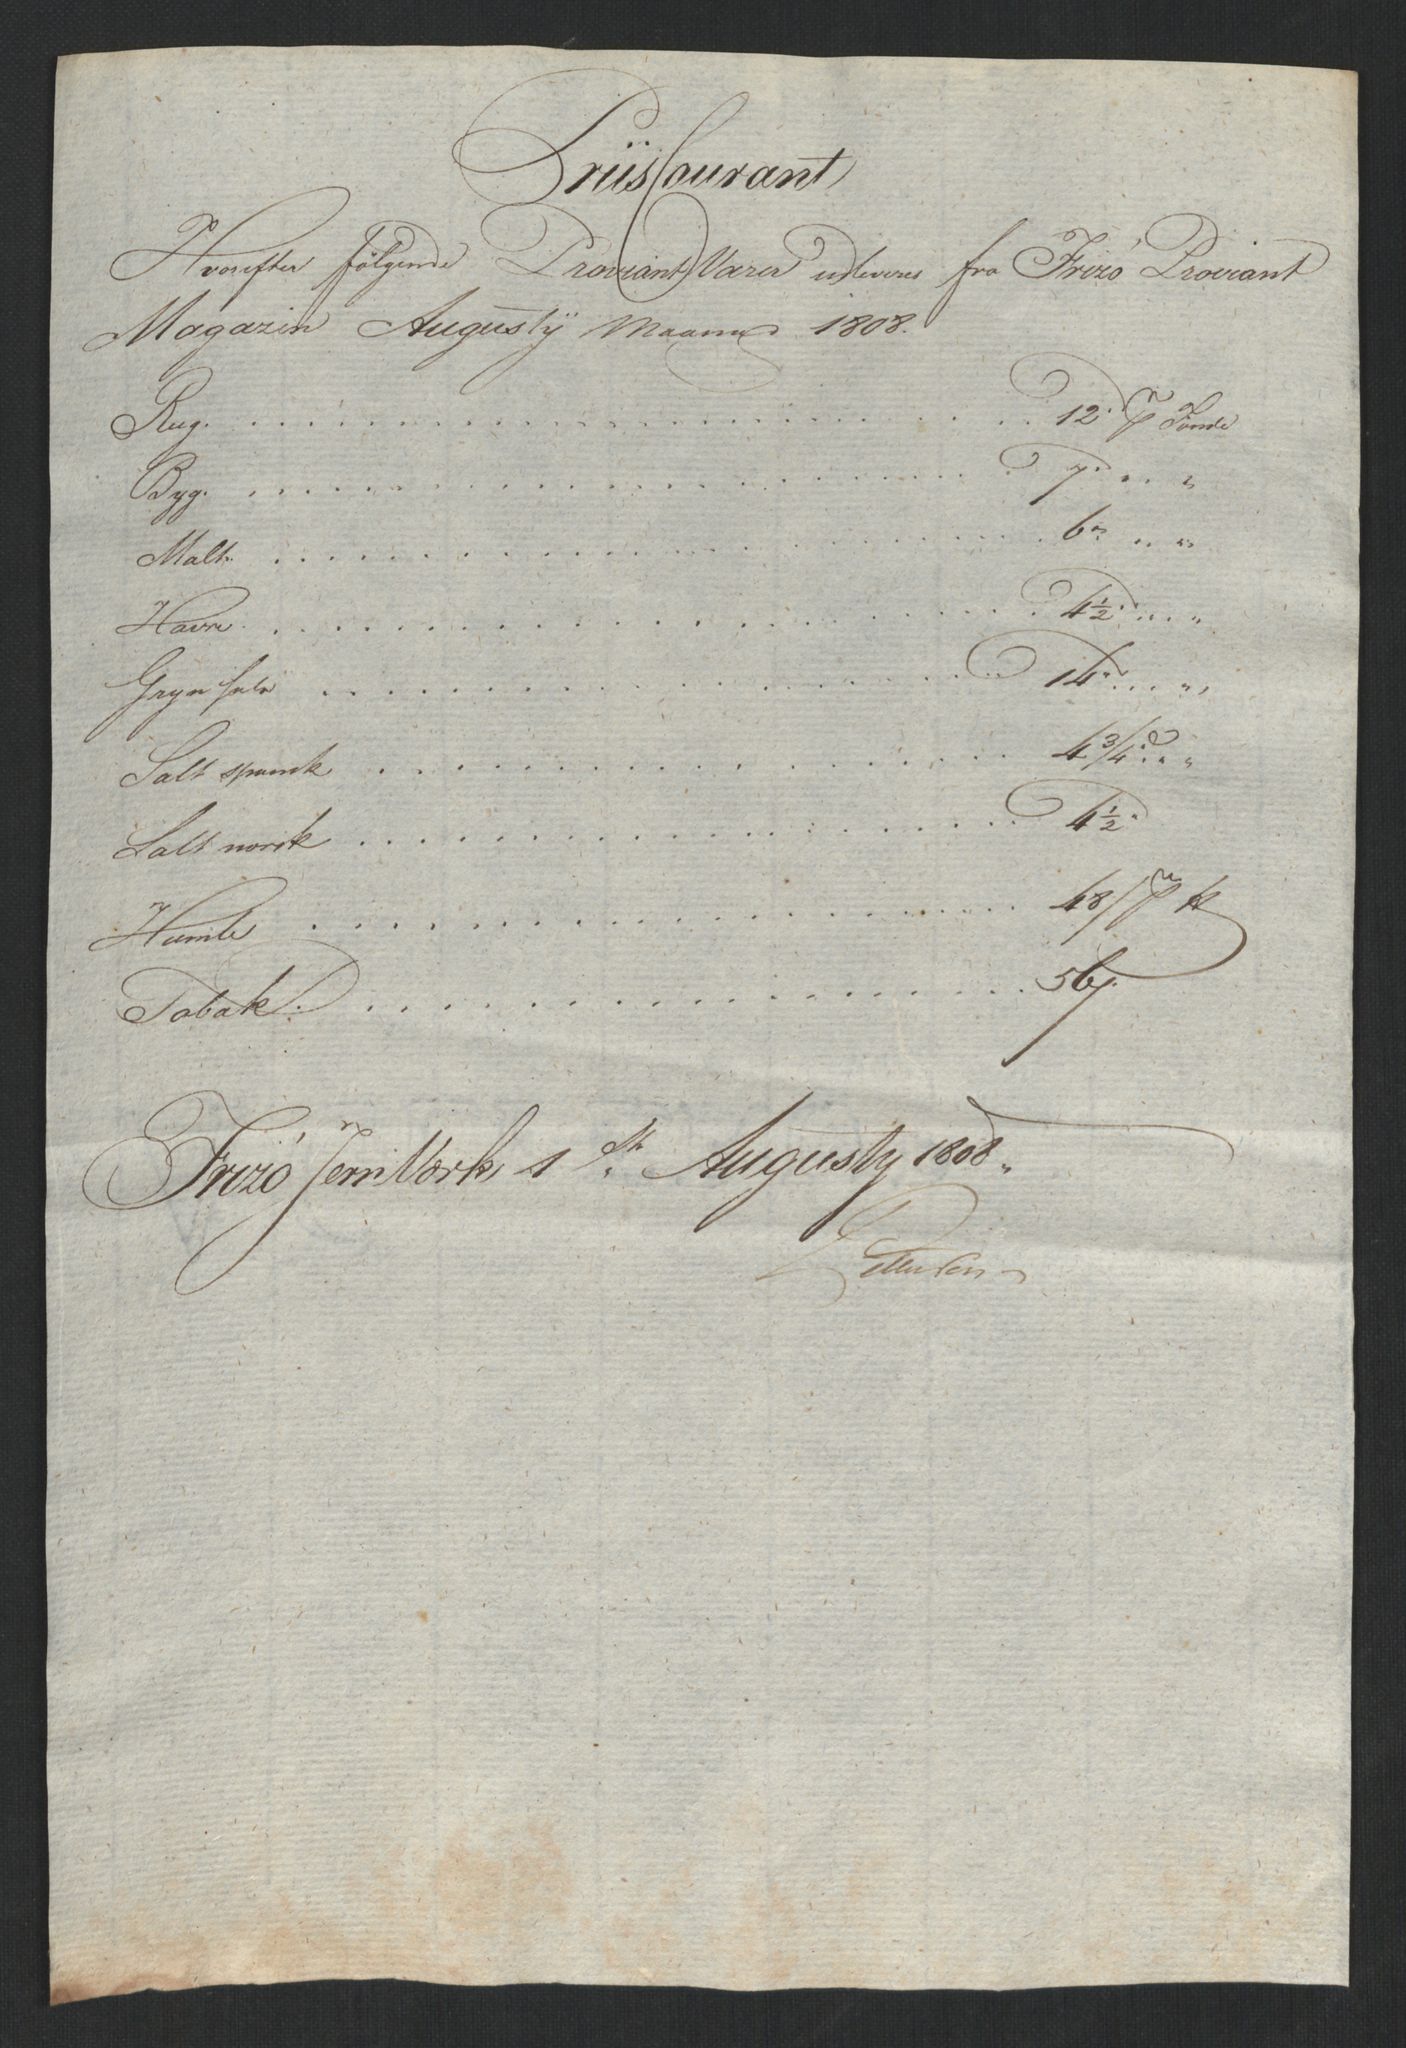 PriisCourant
Hvorefter følgende Proviant Varer udleveres fra Frizö Proviant
Magazin Augusty Maaned 1808.
Rug. . . . 12. pr Tønde
Byg. . . . 7. " "
Malt. . . . 6 " "
Havre. . . . 4½ " "
Gryn hele . . . 14 " "
Salt spansk . . . 4 3/4 " "
Salt norsk . . . 4½ "
Humle . . . 48/ pr tt
Tobak. . . . 56/.
Frizö Jern Værk 1ste Augusty 1808.